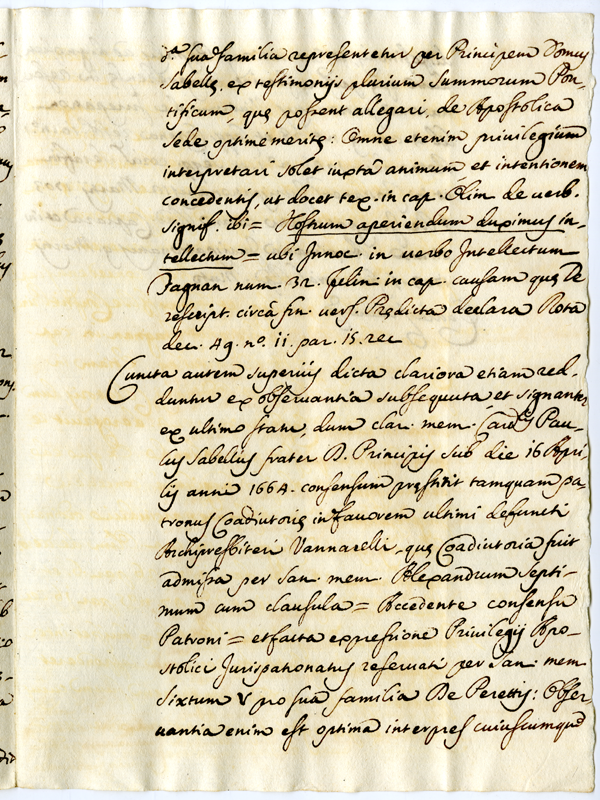 d.ª sua familia representetur per Principem Domus
Sabellę, ex testimonijs plurium Summorum Pon-
tificum, quę possent allegari, de Apostolica
Sede optimè meritę: Omne etenim privilegium
interpretari solet iuxta animum, et intentionem
concedentis, ut docet tex. in cap. Olim de verb.
signif. ibi = Nostrum aperiendum duximus in-
tellectum = ubi Innoc. in verbo Intellectum
Fagnan num. 32. Felin in cap. causam quę De
rescript. circà fin. vers. Prędicta declara Rota
dec. 49. nº. 11. par. 15. rec
Cuncta autem superius dicta clariora etiam red-
duntur ex observantia subsequuta, et signanter
ex ultimo statu, dum clar. mem. Card.lis Pau-
lus Sabellius frater D. Principis sub die 16 Apri-
lis anni 1664. consensum pręstitit tamquam pa-
tronus Coadiutorię in favorem ultimi defuncti
Archipresbiteri Vannarelli, quę Coadiutoria fuit
admissa per San. mem. Alexandrum Septi-
mum cum clausula = Accedente consensu
Patroni = et facta expressione Privilegij Apo-
stolici Jurispatronatus reservati per San. mem
Sixtum V pro sua familia De Perettis: Obser-
vantia enim est optima interpres cuiuscumque